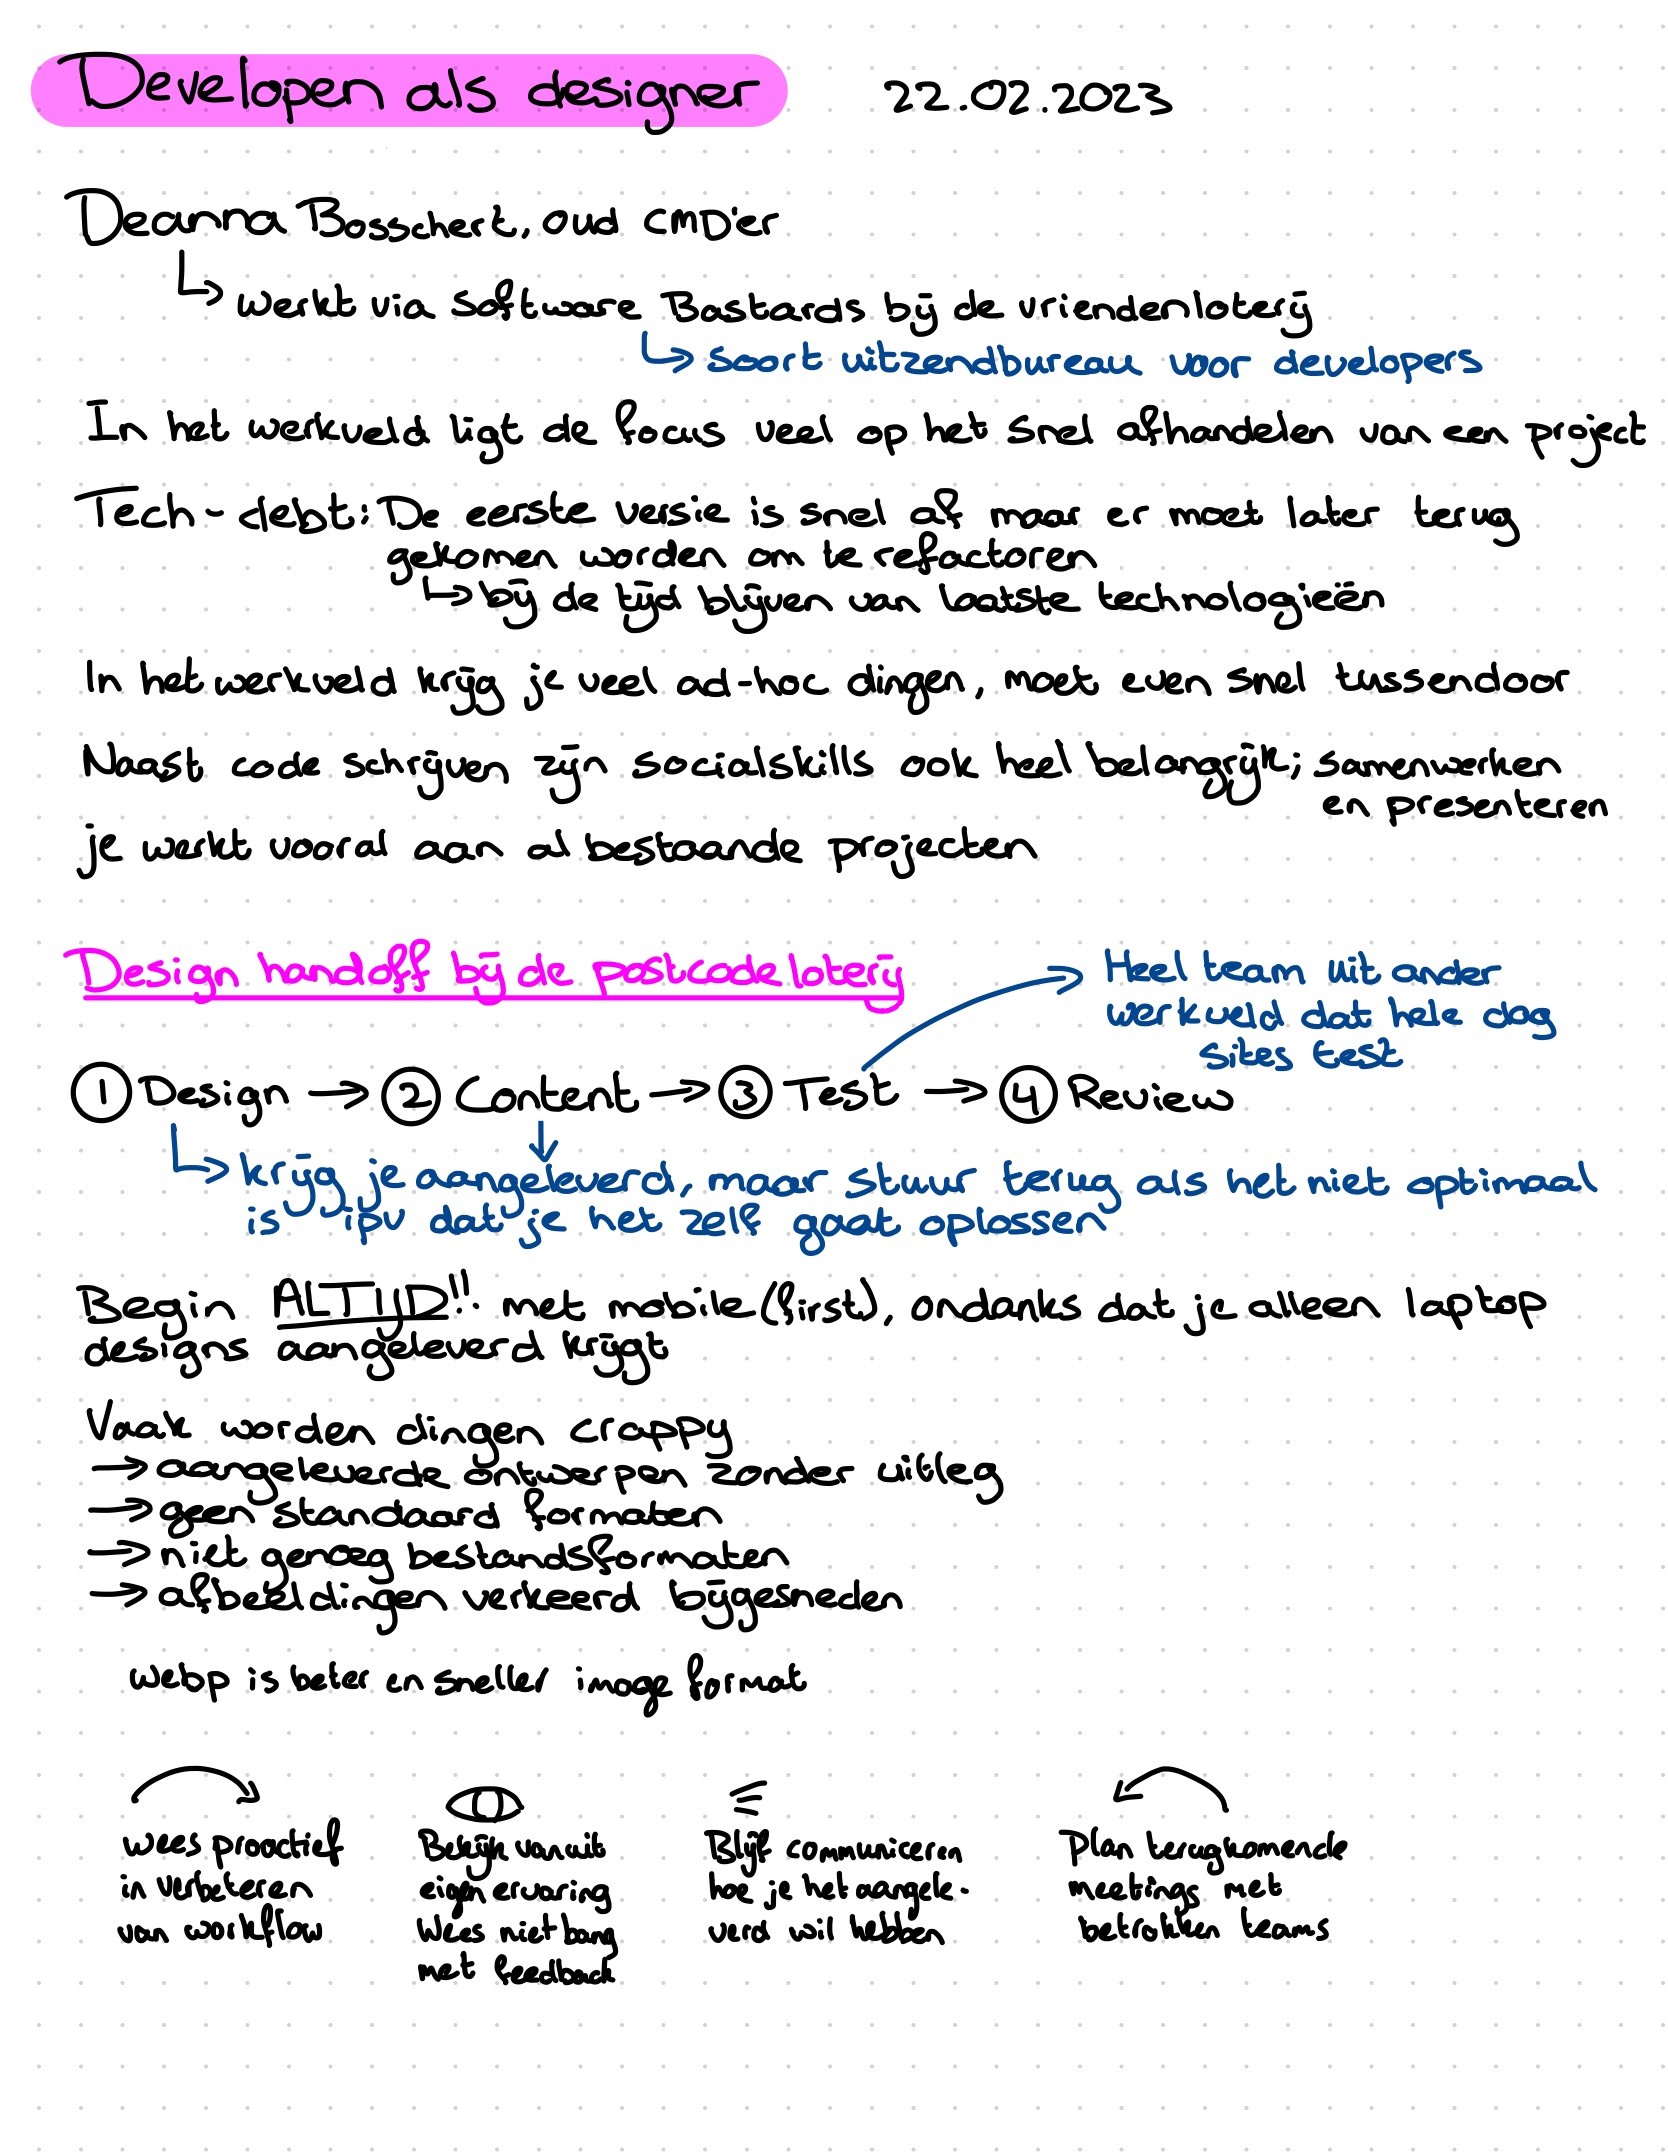 Developen als designer 22.02.2023
Deanna Bosschert, oud CMD'er
↳ werkt via Software Bastards bij de vriendenloterij
↳ soort uitzendbureau voor developers
In het werkveld ligt de focus veel op het snel afhandelen van een project
Tech-debt: De eerste versie is snel af maar er moet later terug
gekomen worden om te refactoren
↳ bij de tijd blijven van laatste technologieën
In het werkveld krijg je veel ad-hoc dingen, moet even snel tussendoor
Naast code schrijven zijn socialskills ook heel belangrijk; samenwerken
en presenteren
je werkt vooral aan al bestaande projecten
Design handoff bij de postcode loterij
Heel team uit ander
werkveld dat hele dag
sites test
① Design → ② Content → ③ Test → ④ Review
↳ krijg je aangeleverd, maar stuur terug als het niet optimaal
is ipv dat je het zelf gaat oplossen
Begin ALTIJD!! met mobile (first), ondanks dat je alleen laptop
designs aangeleverd krijgt
Vaak worden dingen crappy
→ aangeleverde ontwerpen zonder uitleg
→ geen standaard formaten
→ niet genoeg bestandsformaten
→ afbeeldingen verkeerd bijgesneden
webp is beter en sneller image format
wees proactief
in verbeteren
van workflow
Bekijk vanuit
eigen ervaring
Wees niet bang
met feedback
Blijf communiceren
hoe je het aangele-
verd wil hebben
Plan terugkomende
meetings met
betrokken teams